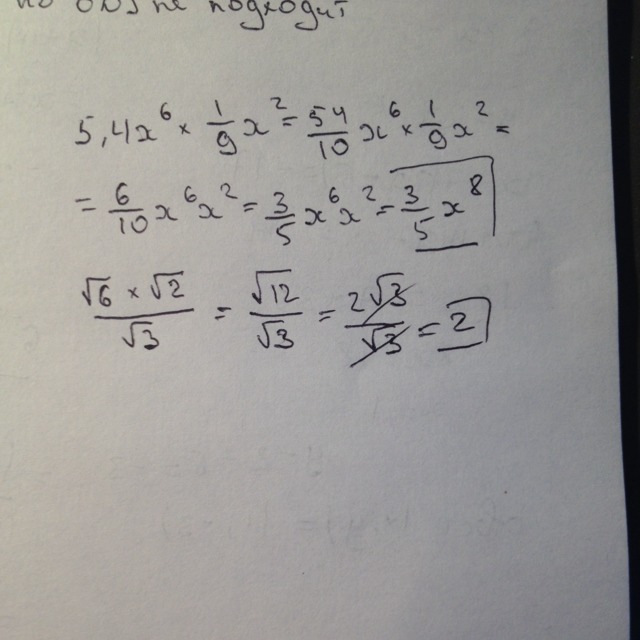 по ОДЗ не подходит
5,4x⁶ × 1/9 x² = 54/10 x⁶ × 1/9 x² =
= 6/10 x⁶x² = 3/5 x⁶x² = 3/5 x⁸
√6 × √2 / √3 = √12 / √3 = 2√3 / √3 = 2